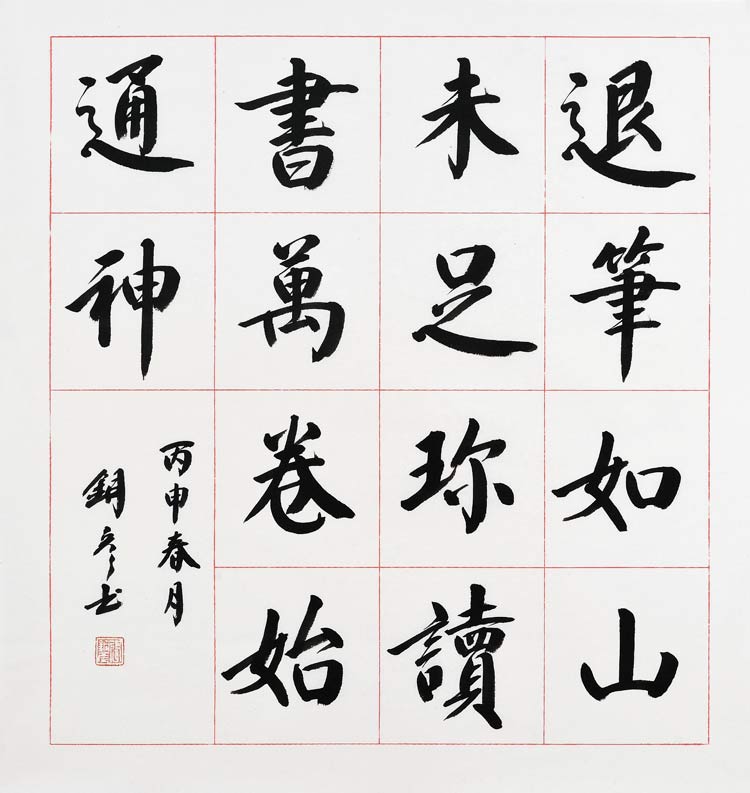 退筆如山
未足珎讀
書萬卷始
通神
丙申春月